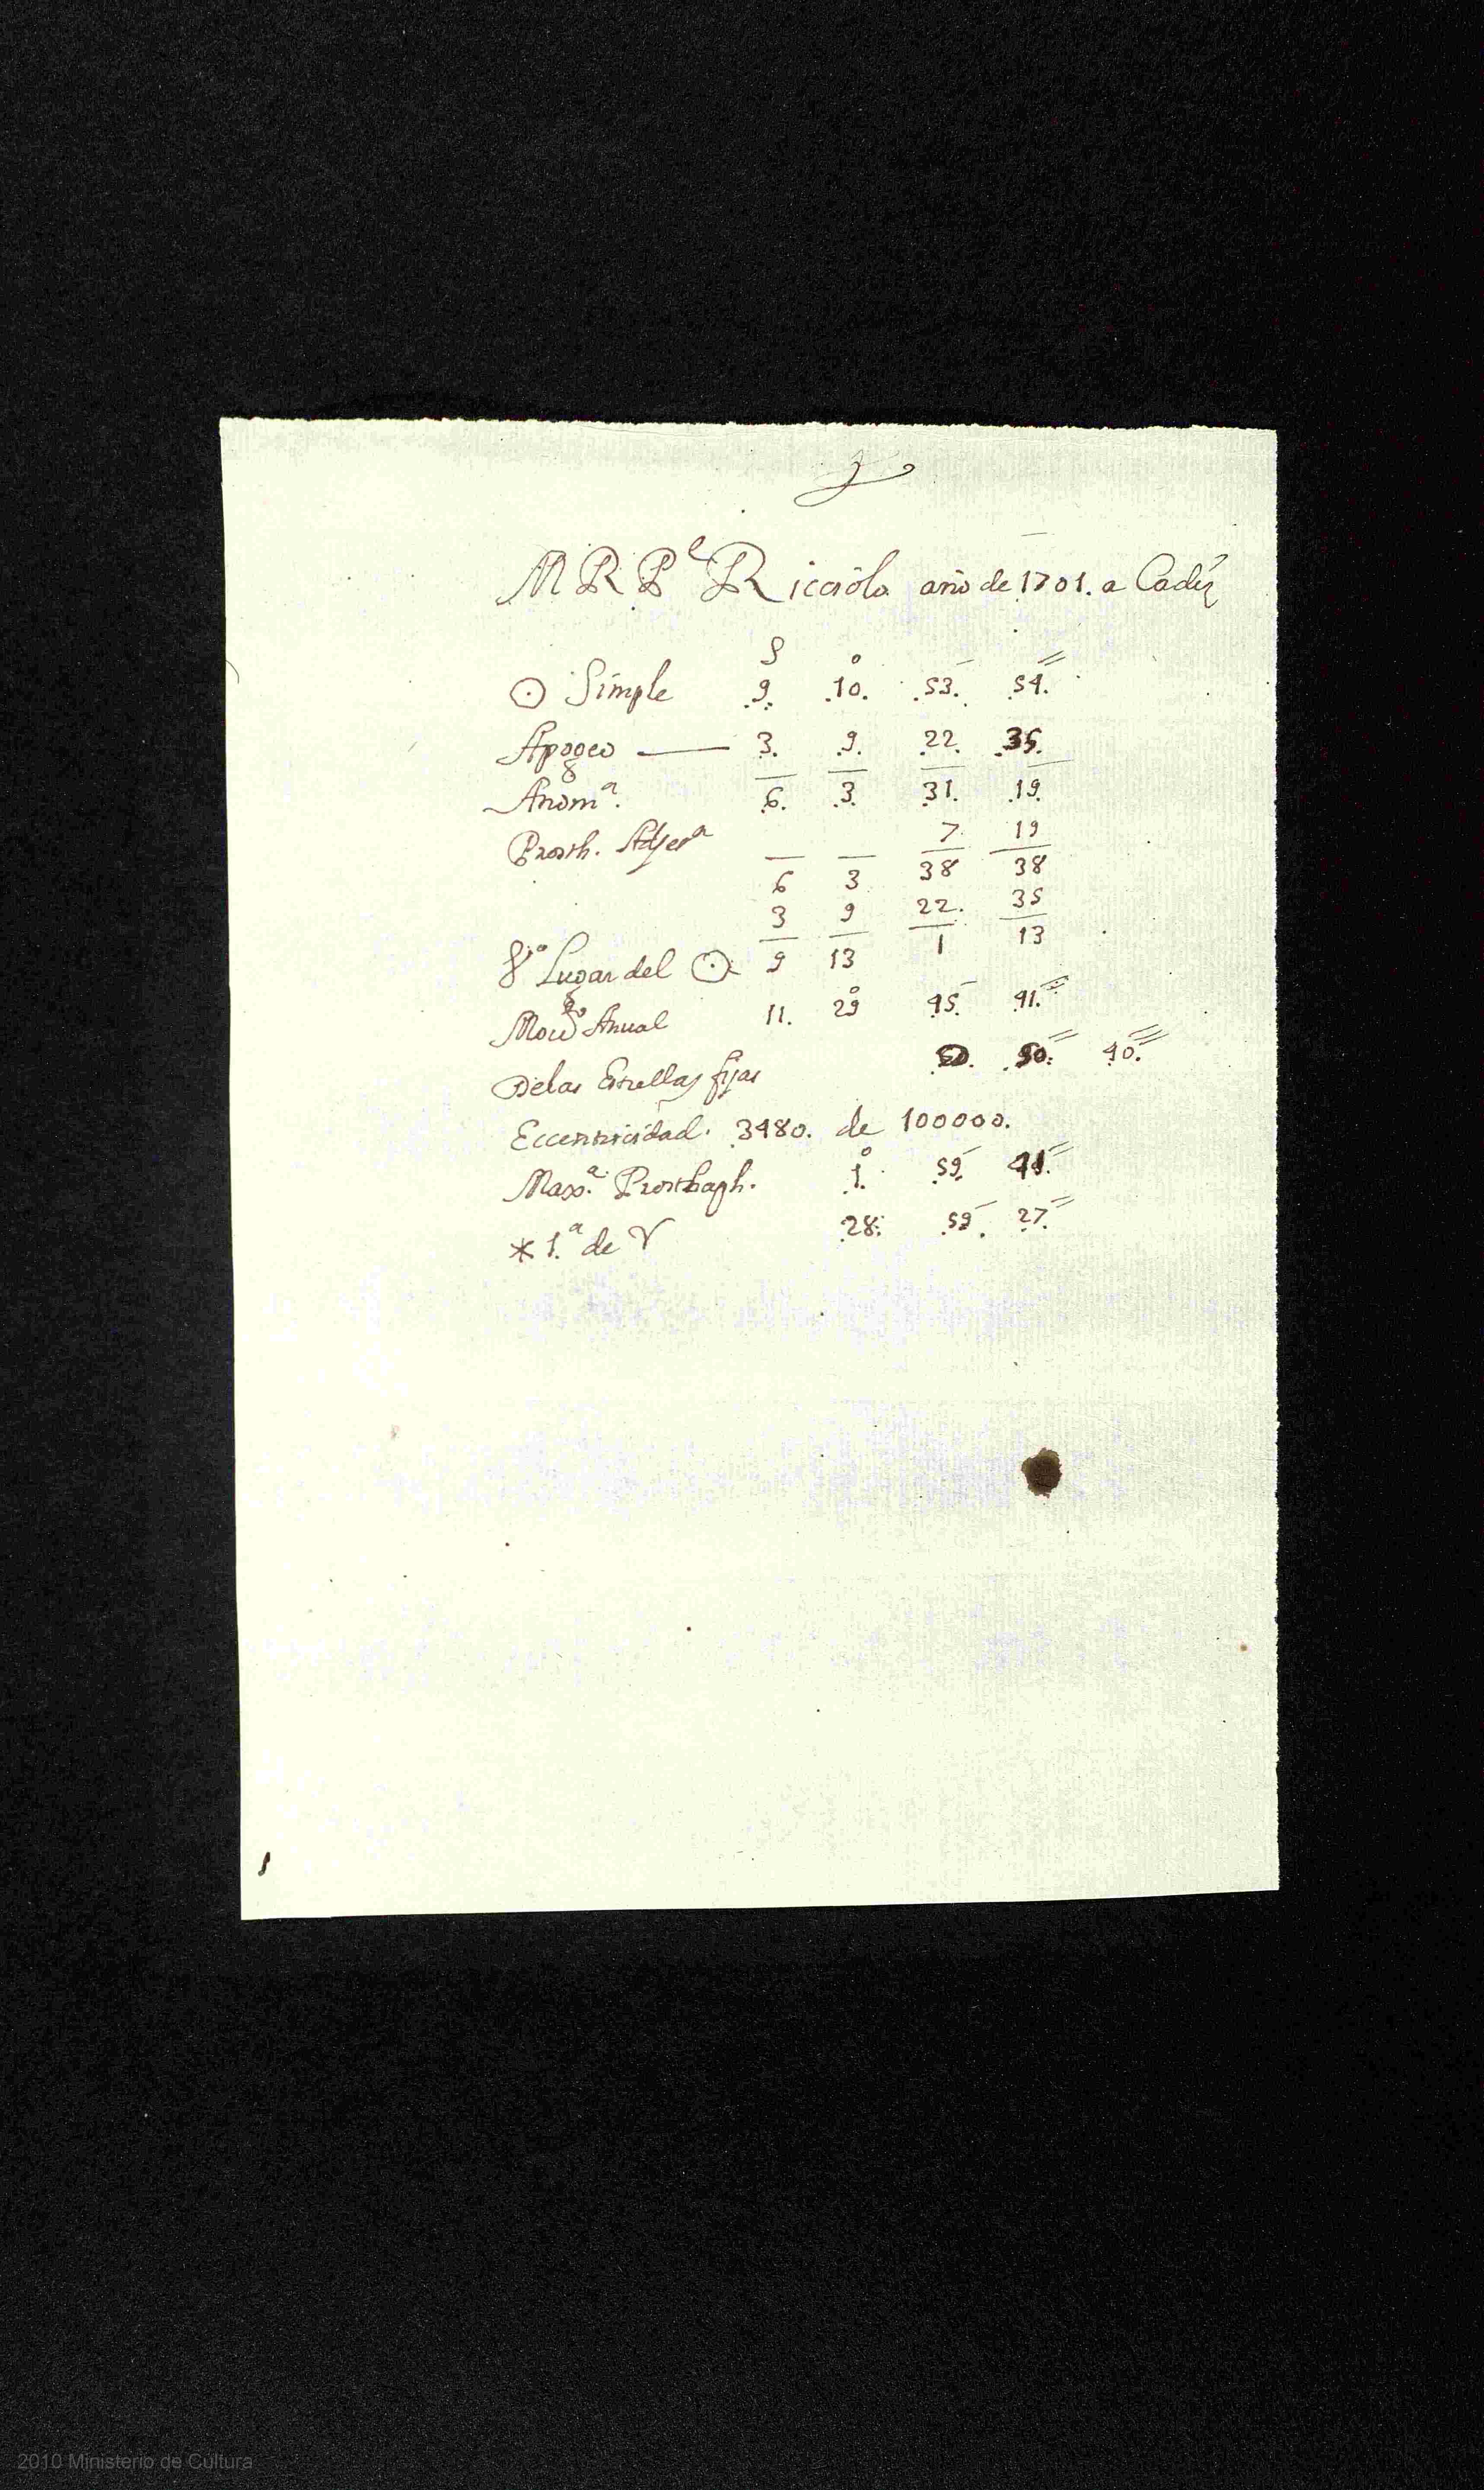 M R P^e Ricciolo año de 1701. a Cadiz
S ° ‾ ‾‾
☉ Simple 9. 10. 53. 54.
Apogeo — 3. 9. 22. 35.
Anom^a. 6. 3. 31. 19.
Prosth. Adjec^a 7 19
6 3 38 38
3 9 22. 35
Lugar del ☉ 9 13 1 13
Anual 11. 29 45. 41.
De las Estrellas fijas 50. 40.
Eccentricidad. 3480. de 100000.
Max.^a Prosthaph. 1. 59. 41.
* 1.^a de ♈ 28. 59. 27.
1
2010 Ministerio de Cultura